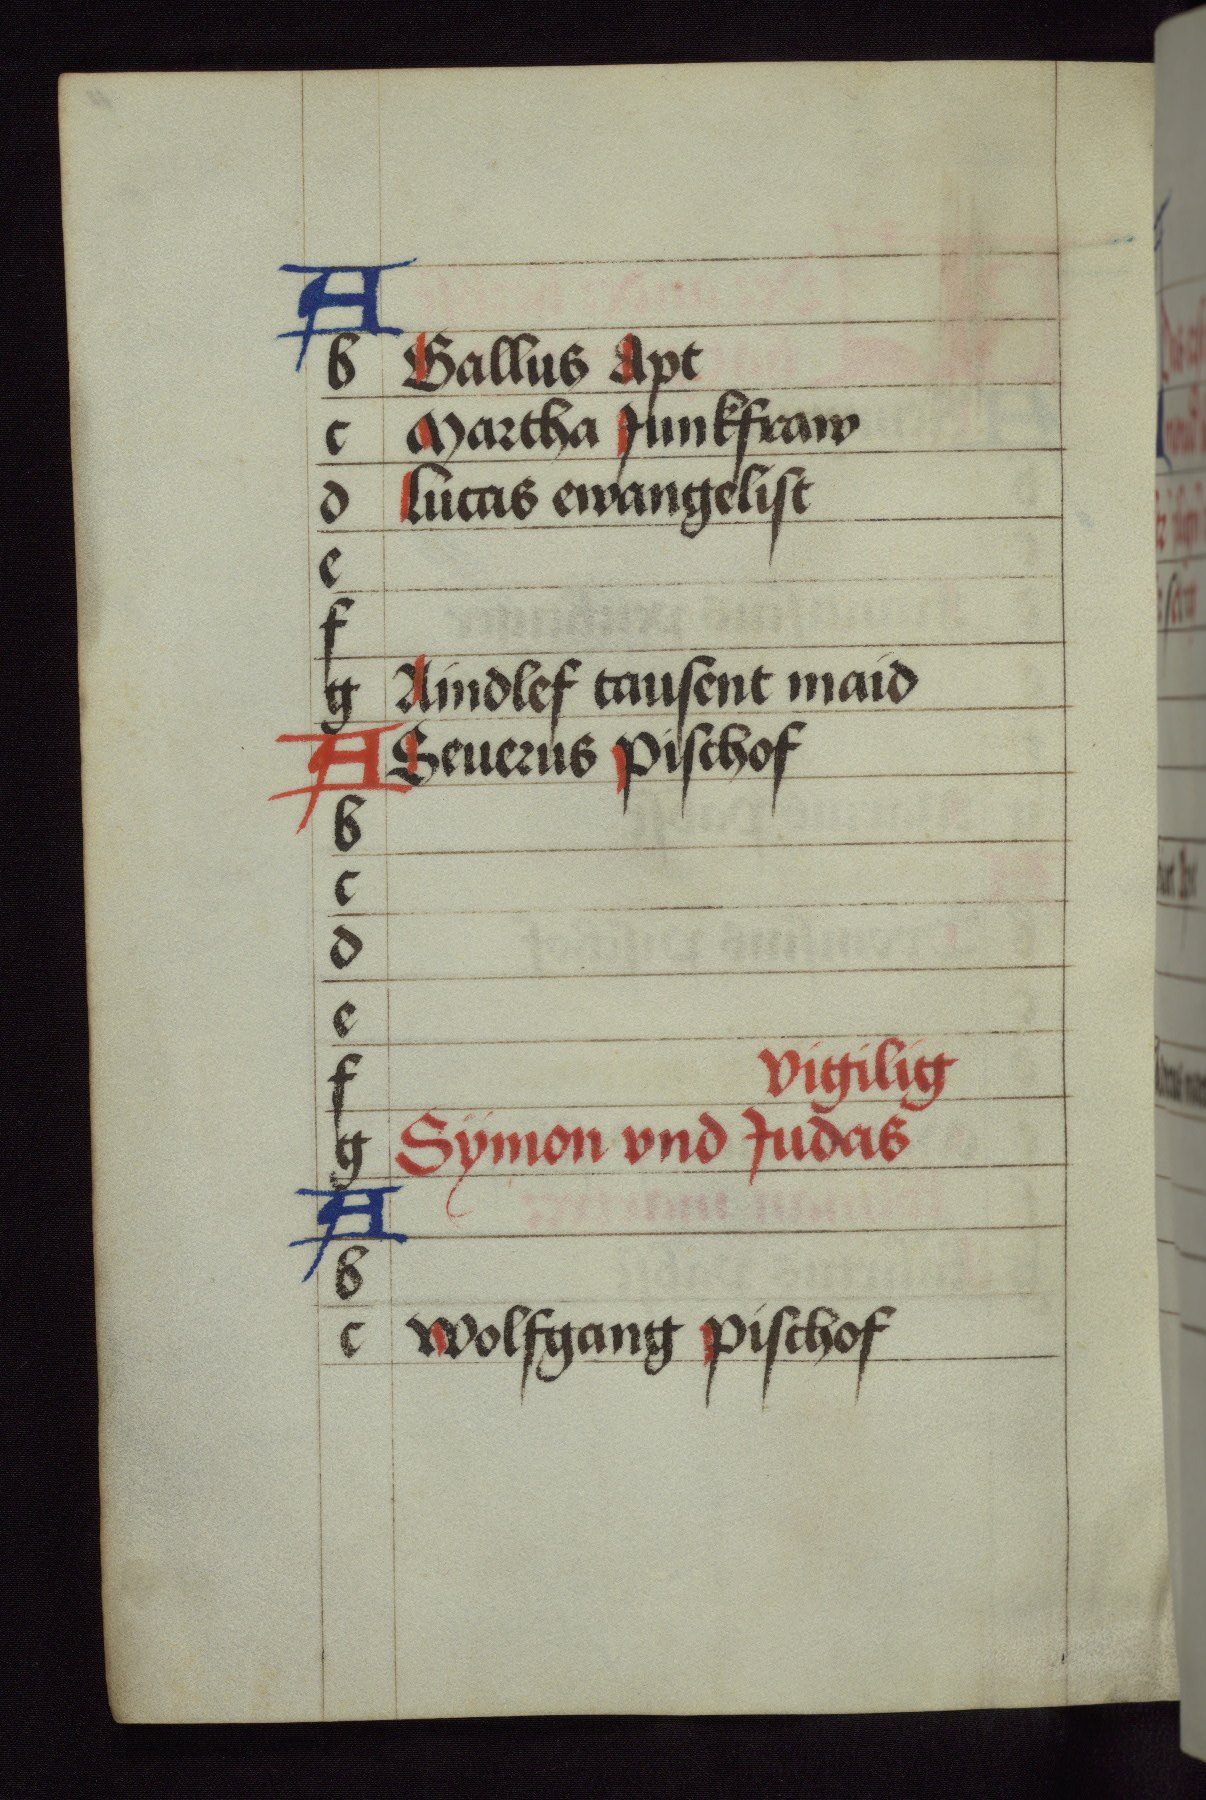 A
b Gallus Apt
c Martha Junkfraw
d Lucas ewangelist
e
f
g Aindlef tausent maid
A Seuerus Pischof
b
c
d
e
f vigilig
g Sÿmon vnd Judas
A
b
c Wolfgang Pischof